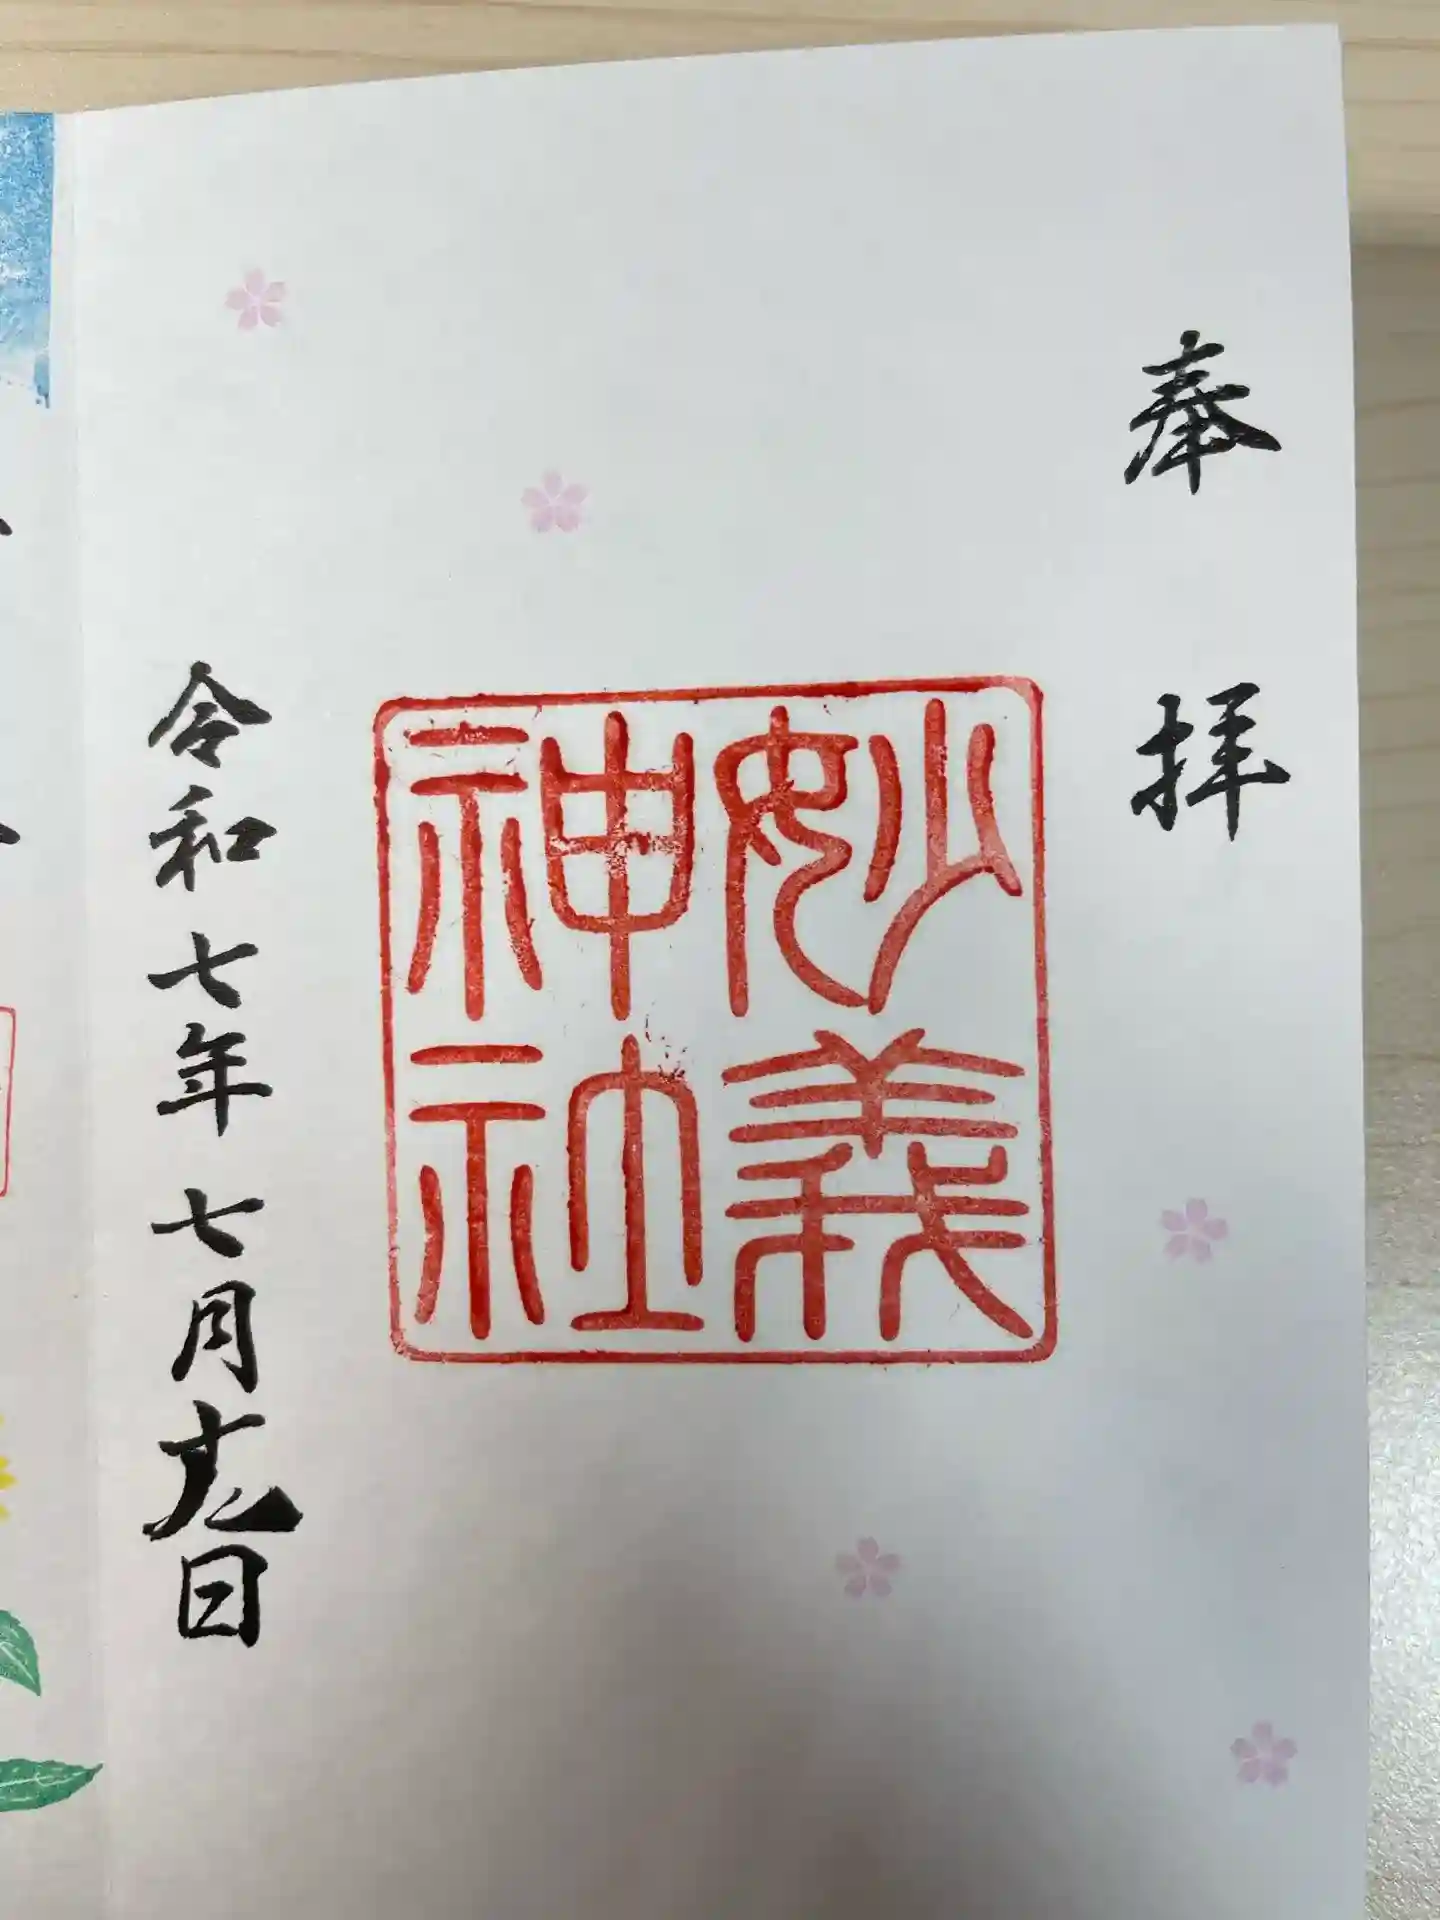 奉拝
妙義
神社
令和七年七月十九日